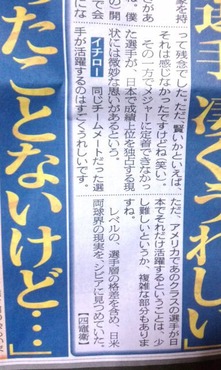 凄くうれしい
ただ、アメリカであのクラスの選手が日
本でそれだけ活躍するということは、少
し難しいというか、複雑な部分もありま
すね。
レベルの、選手層の格差を含め、日米
両球界の現実を、シビアに見つめていた。
【四竈衛】
って残念でした。ただ、賢いかといえば、
それは感じなかったですけどね（笑い）。
その一方でメジャーに定着できなかっ
た選手が、日本で成績上位を独占する現
状には微妙な思いがあるという。
イチロー　同じチームメートだった選
手が活躍するのはすごくうれしいです。
ったことないけど…」